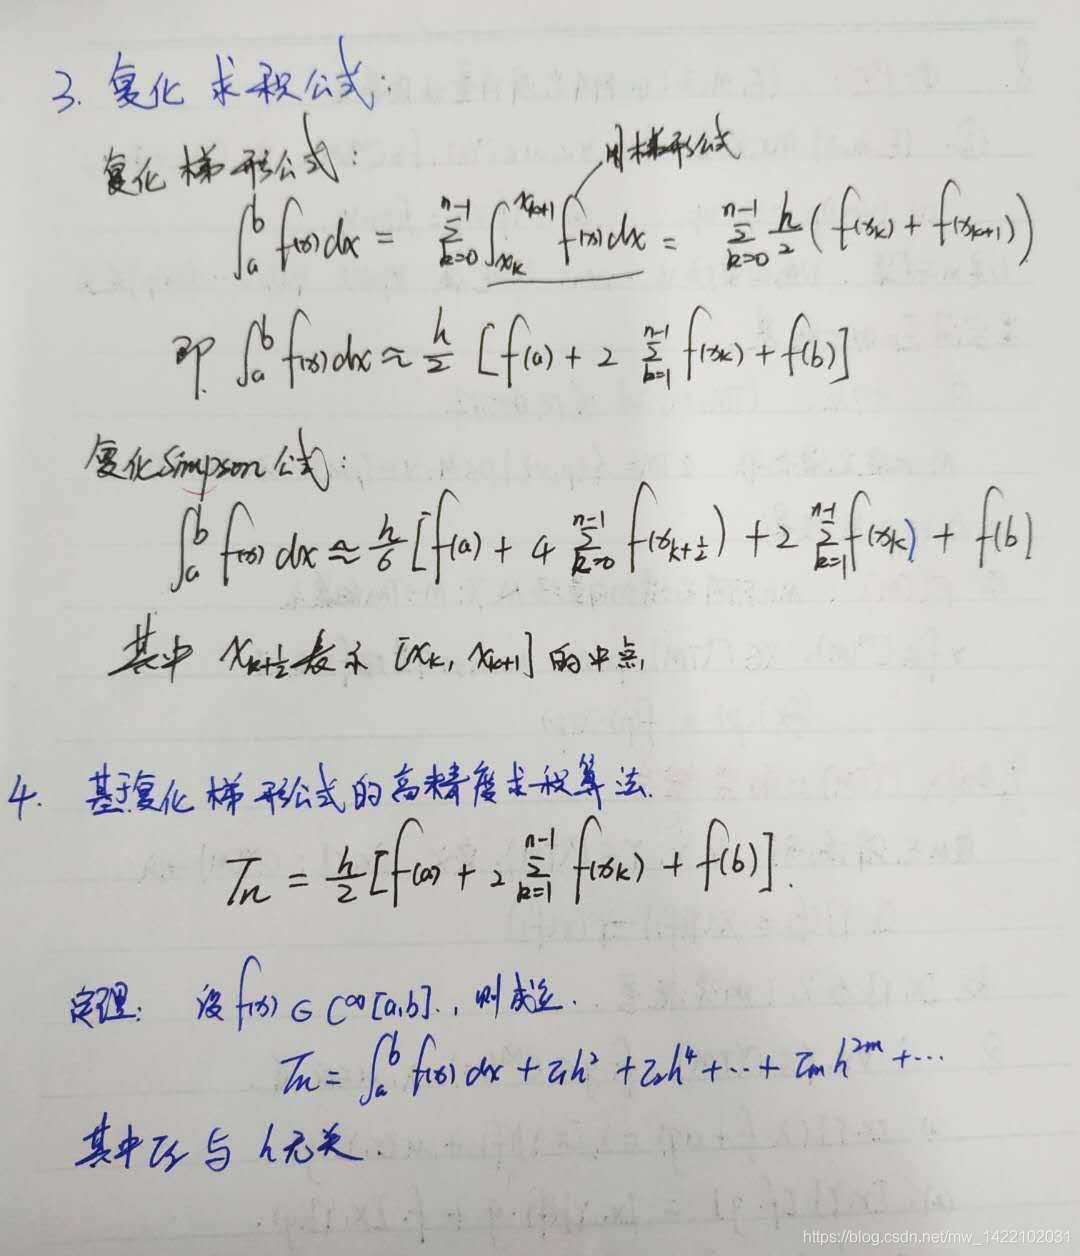 3. 复化求积公式:
复化梯形公式:
用梯形公式
∫_a^b f(x)dx = Σ_{k=0}^{n-1} ∫_{x_k}^{x_{k+1}} f(x)dx = Σ_{k=0}^{n-1} h/2 (f(x_k) + f(x_{k+1}))
即 ∫_a^b f(x)dx ≈ h/2 [f(a) + 2 Σ_{k=1}^{n-1} f(x_k) + f(b)]
复化Simpson公式:
∫_a^b f(x)dx ≈ h/6 [f(a) + 4 Σ_{k=0}^{n-1} f(x_{k+1/2}) + 2 Σ_{k=1}^{n-1} f(x_k) + f(b)]
其中 x_{k+1/2} 表示 [x_k, x_{k+1}] 的中点
4. 基于复化梯形公式的高精度求积算法.
T_n = h/2 [f(a) + 2 Σ_{k=1}^{n-1} f(x_k) + f(b)].
定理: 设 f(x) ∈ C^∞[a,b]., 则成立.
T_n = ∫_a^b f(x)dx + τ_1h^2 + τ_2h^4 + ⋯ + τ_mh^{2m} + ⋯
其中 τ_j 与 h无关.
https://blog.csdn.net/mw_1422102031